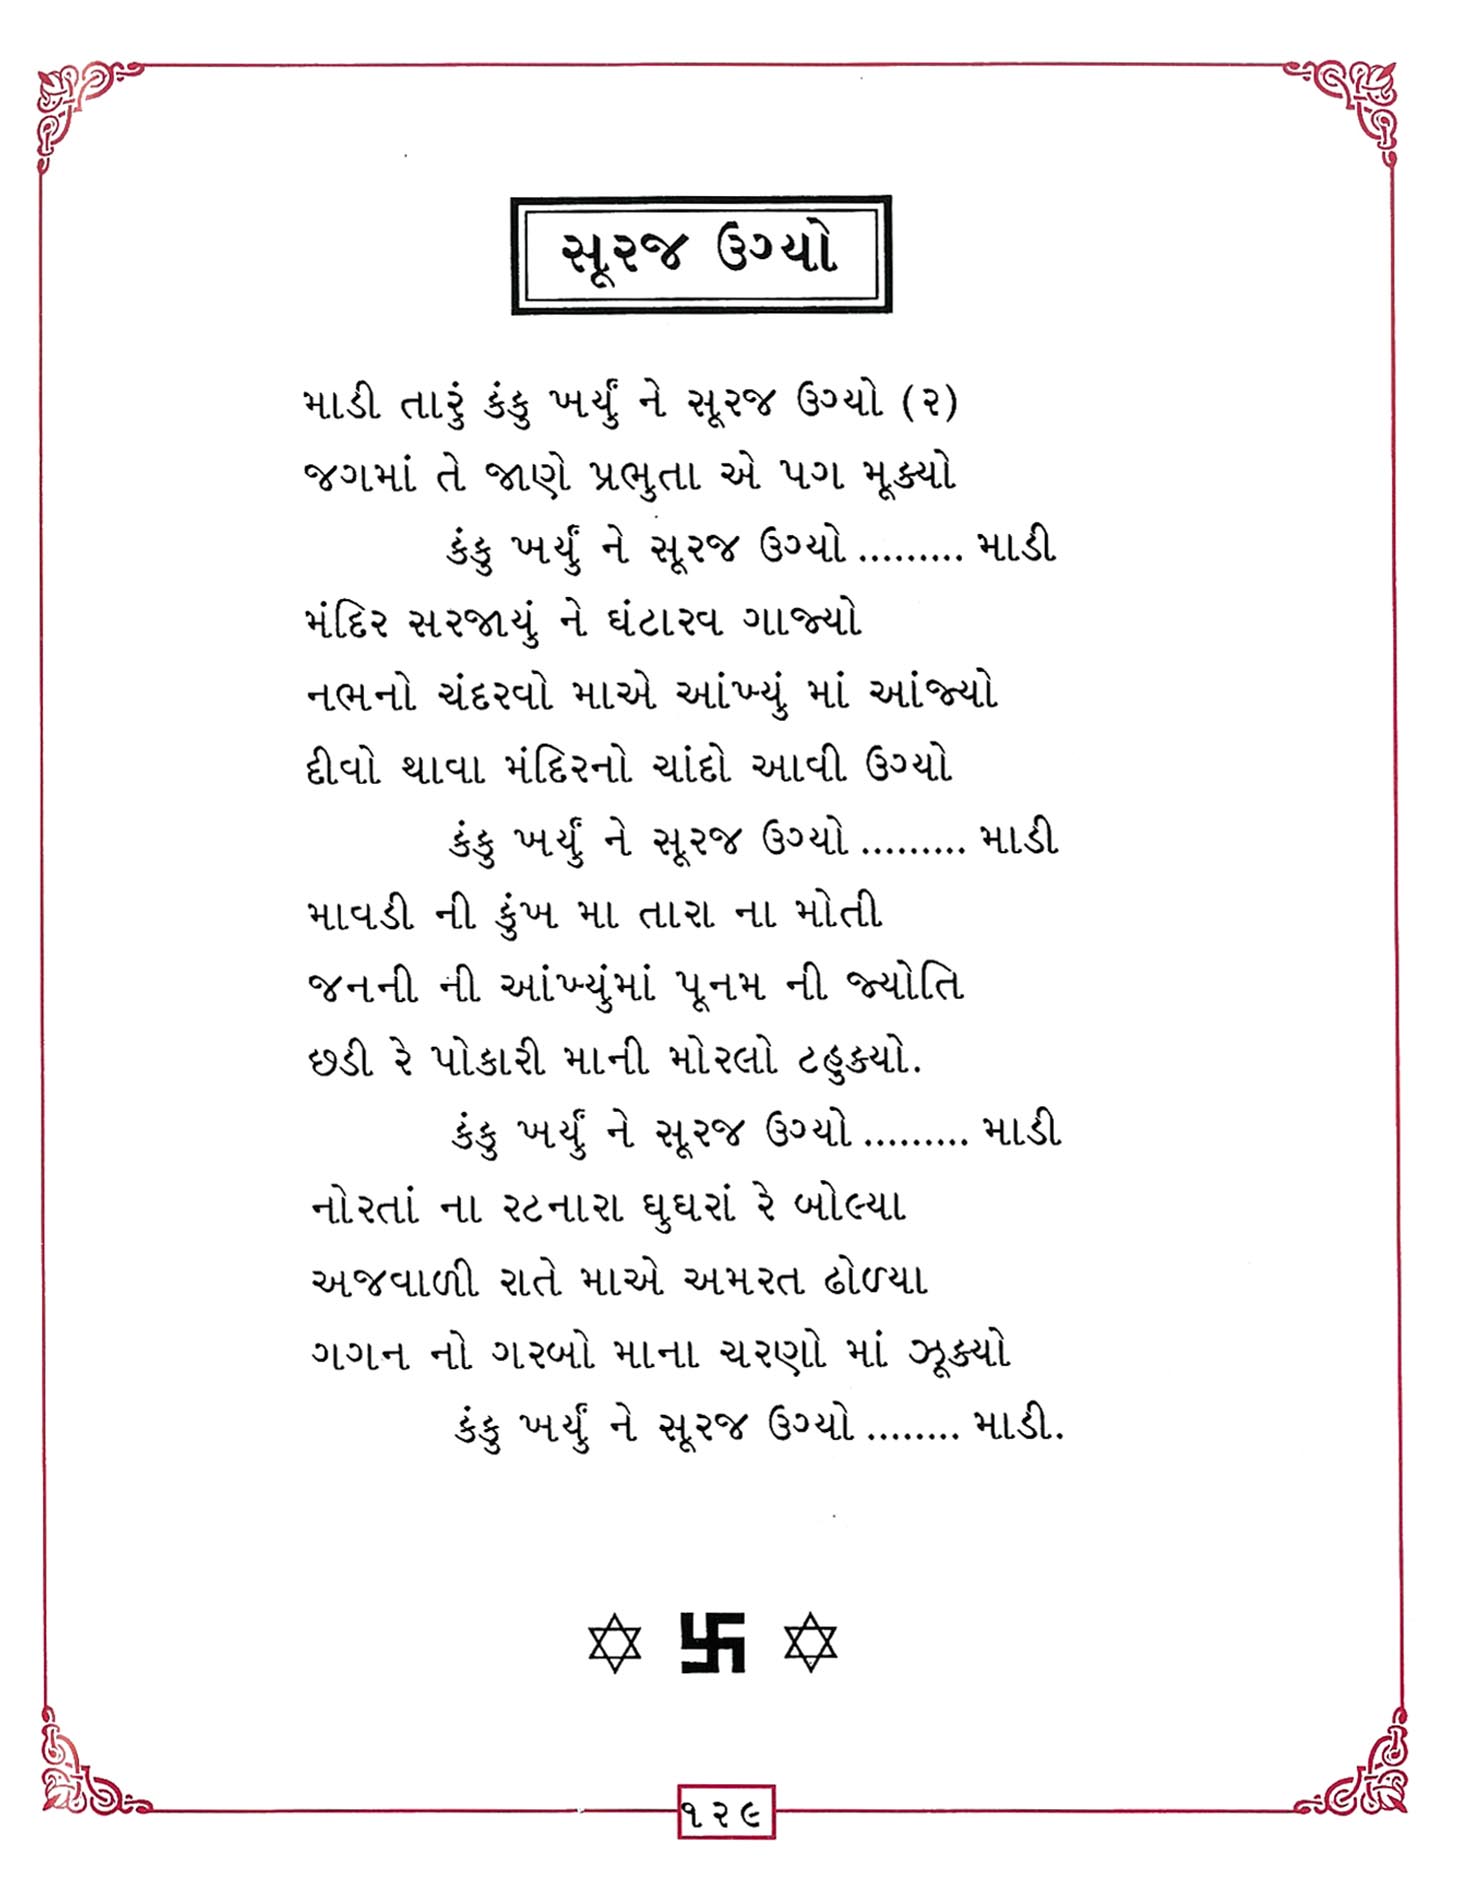 સૂરજ ઉગ્યો
માડી તારું કંકુ ખર્યું ને સૂરજ ઉગ્યો (૨)
જગમાં તે જાણે પ્રભુતા એ પગ મૂક્યો
કંકુ ખર્યું ને સૂરજ ઉગ્યો ......... માડી
મંદિર સરજાયું ને ઘંટારવ ગાજ્યો
નભનો ચંદરવો માએ આંખ્યું માં આંજ્યો
દીવો થાવા મંદિરનો ચાંદો આવી ઉગ્યો
કંકુ ખર્યું ને સૂરજ ઉગ્યો ......... માડી
માવડી ની કુંખ મા તારા ના મોતી
જનની ની આંખ્યુંમાં પૂનમ ની જ્યોતિ
છડી રે પોકારી માની મોરલો ટહુક્યો.
કંકુ ખર્યું ને સૂરજ ઉગ્યો ......... માડી
નોરતાં ના રટનારા ઘુઘરાં રે બોલ્યા
અજવાળી રાતે માએ અમરત ઢોળ્યા
ગગન નો ગરબો માના ચરણો માં ઝૂક્યો
કંકુ ખર્યું ને સૂરજ ઉગ્યો ........ માડી.
૧૨૯